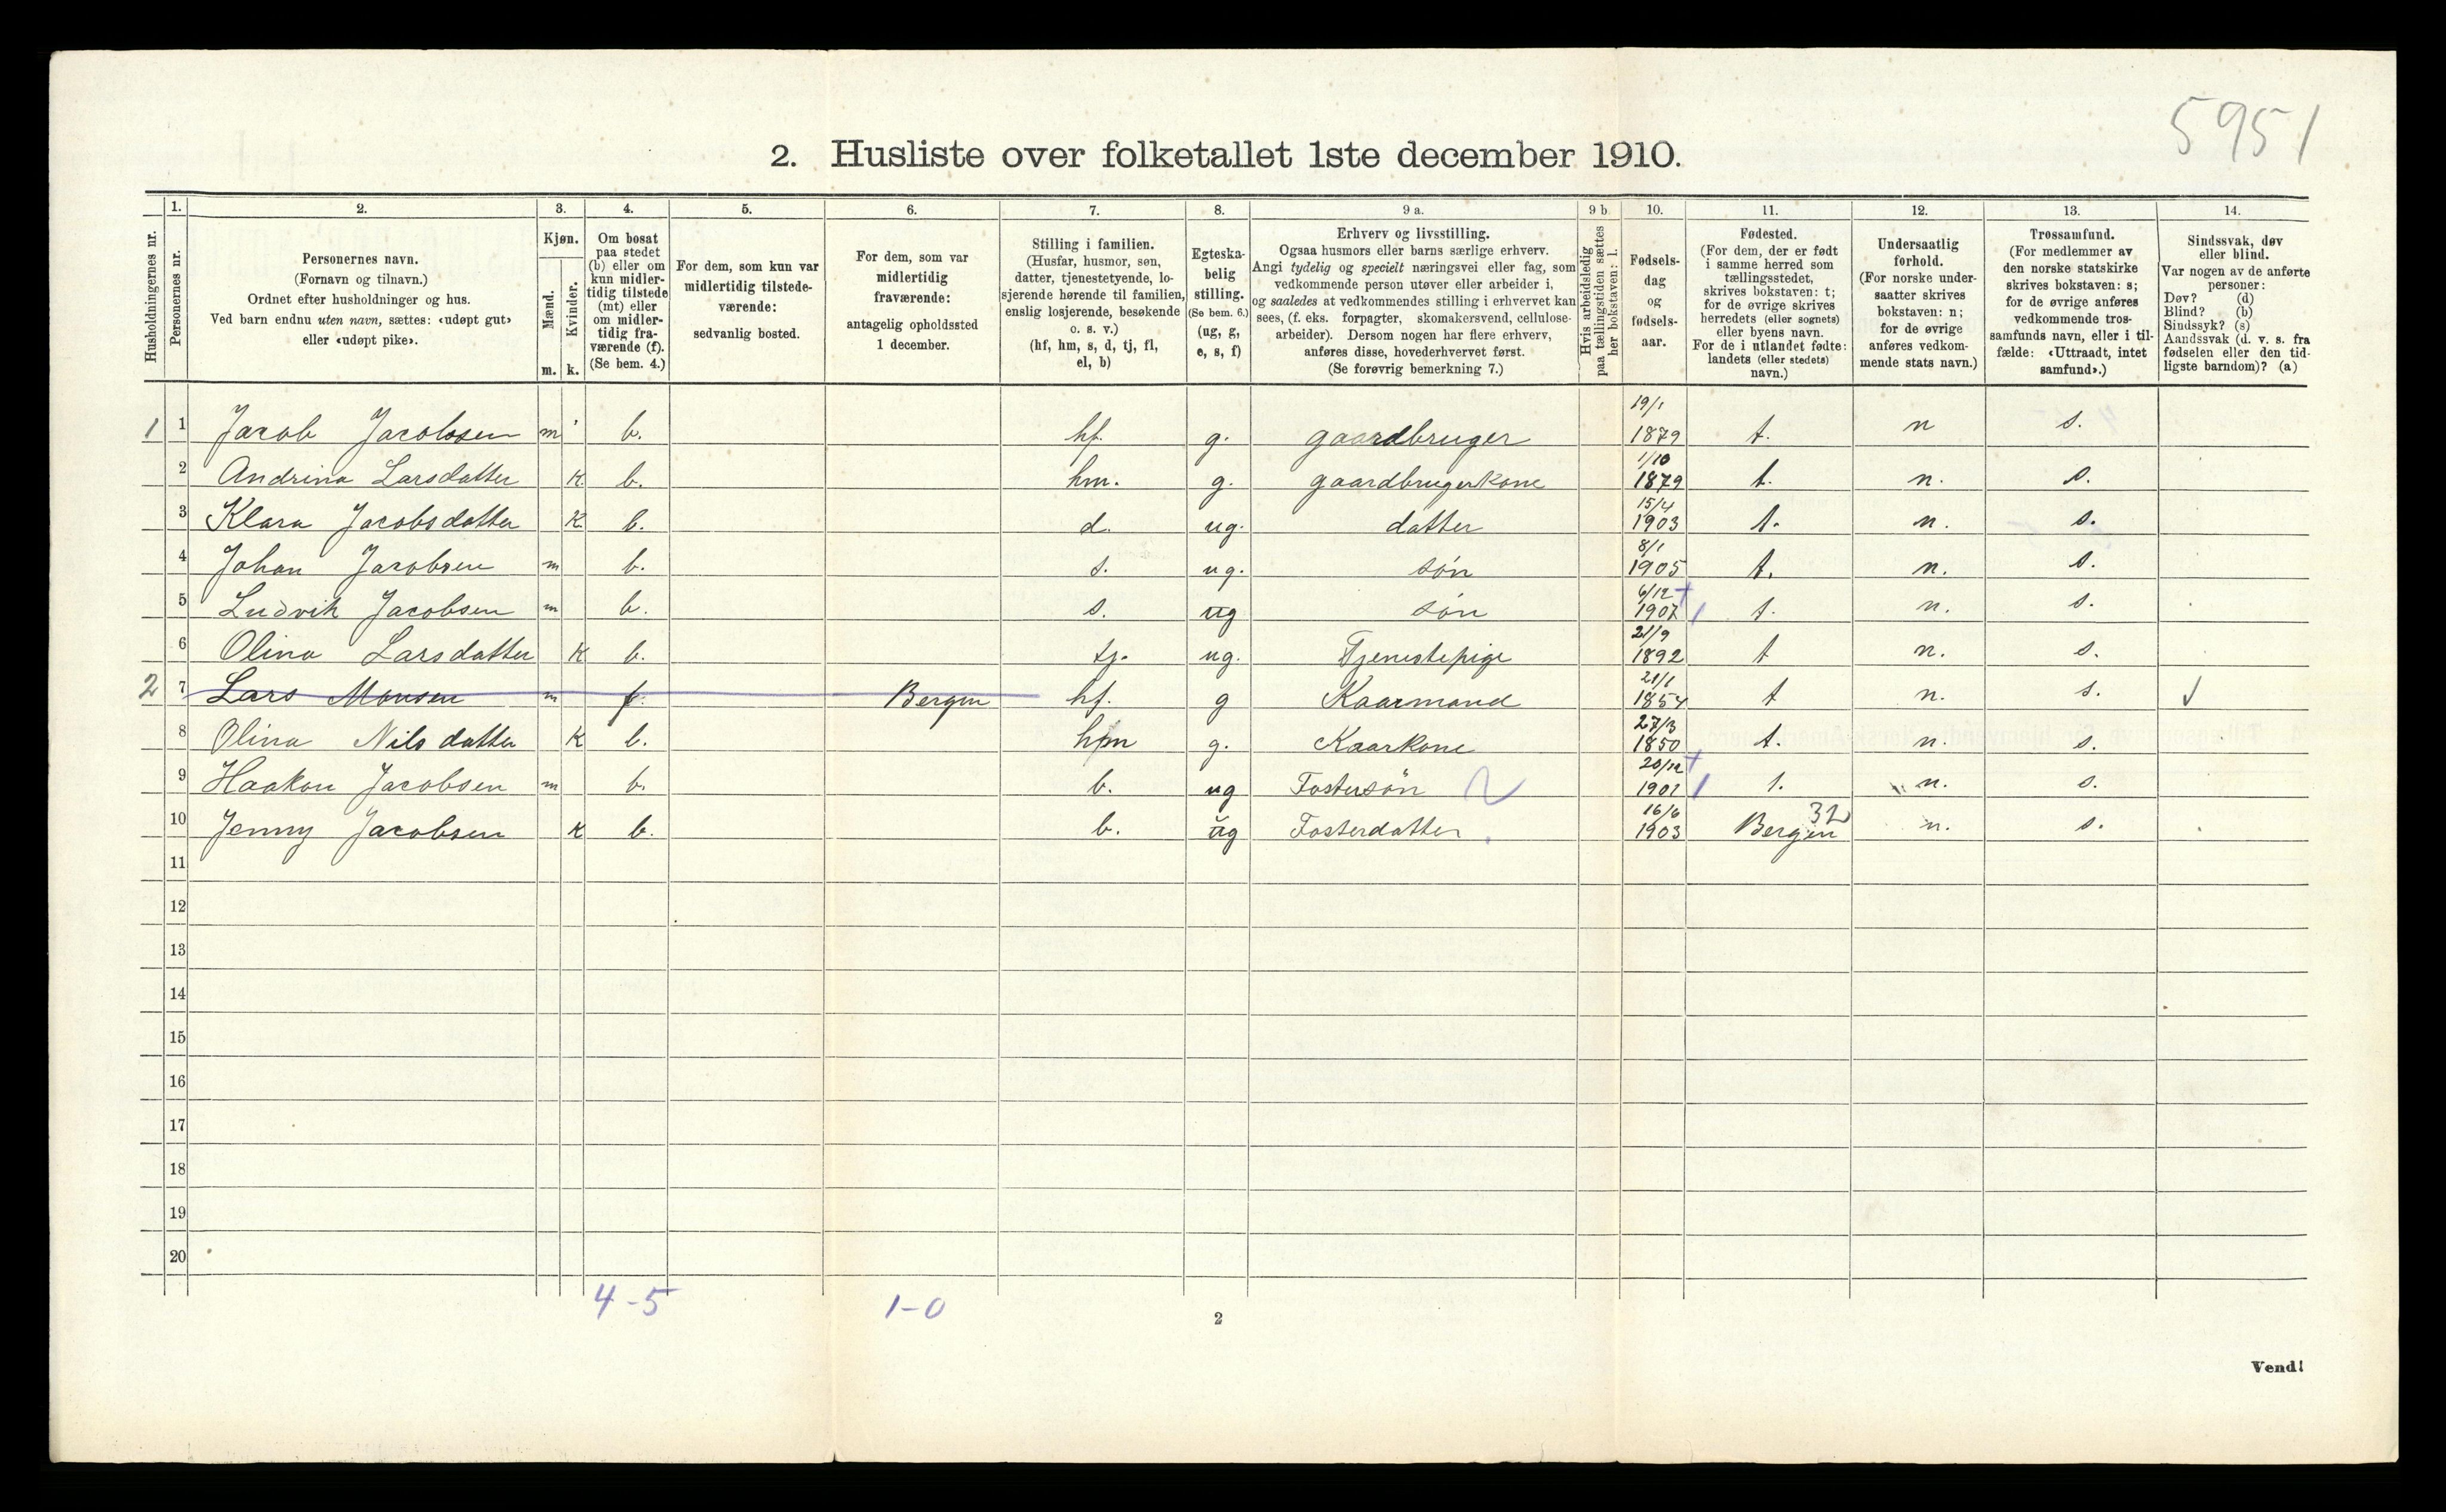 5951
2. Husliste over folketallet 1ste december 1910.
Husholdningernes nr.
1. 2. 3. 4. 5. 6. 7. 8. 9 a. 9 b 10. 11. 12. 13. 14.
Personernes nr.
Personernes navn.
(Fornavn og tilnavn.)
Ordnet efter husholdninger og hus.
Ved barn endnu uten navn, sættes: «udøpt gut»
eller «udøpt pike».
Kjøn.
Mænd.
Kvinder.
m. k.
Om bosat
paa stedet
(b) eller om
kun midler-
tidig tilstede
(mt) eller
om midler-
tidig fra-
værende (f).
(Se bem. 4.)
For dem, som kun var
midlertidig tilstede-
værende:
sedvanlig bosted.
For dem, som var
midlertidig
fraværende:
antagelig opholdssted
1 december.
Stilling i familien.
(Husfar, husmor, søn,
datter, tjenestetyende, lo-
sjerende hørende til familien,
enslig losjerende, besøkende
o. s. v.)
(hf, hm, s, d, tj, fl,
el, b)
Egteska-
belig
stilling.
(Se bem. 6.)
(ug, g,
e, s, f)
Erhverv og livsstilling.
Ogsaa husmors eller barns særlige erhverv.
Angi tydelig og specielt næringsvei eller fag, som
vedkommende person utøver eller arbeider i,
og saaledes at vedkommendes stilling i erhvervet kan
sees, (f. eks. forpagter, skomakersvend, cellulose-
arbeider). Dersom nogen har flere erhverv,
anføres disse, hovederhvervet først.
(Se forøvrig bemerkning 7.)
Hvis arbeidsledig
paa tællingstiden sættes
her bokstaven: l.
Fødsels-
dag
og
fødsels-
aar.
Fødested.
(For dem, der er født
i samme herred som
tællingsstedet,
skrives bokstaven: t;
for de øvrige skrives
herredets (eller sognets)
eller byens navn.
For de i utlandet fødte:
landets (eller stedets)
navn.)
Undersaatlig
forhold.
(For norske under-
saatter skrives
bokstaven: n;
for de øvrige
anføres vedkom-
mende stats navn.)
Trossamfund.
(For medlemmer av
den norske statskirke
skrives bokstaven: s;
for de øvrige anføres
vedkommende tros-
samfunds navn, eller i til-
fælde: «Uttraadt, intet
samfund».)
Sindssvak, døv
eller blind.
Var nogen av de anførte
personer:
Døv? (d)
Blind? (b)
Sindssyk? (s)
Aandssvak (d. v. s. fra
fødselen eller den tid-
ligste barndom)? (a)
1 1 Jacob Jacobsen m b. hf. g. gaardbruger 19/1 1879 t. n s.
2 Andrina Larsdatter K b. hm. g. gaardbrugerkone 1/10 1879 t. n. s.
3 Klara Jacobsdatter K b. d. ug. datter 15/4 1903 t. n. s.
4 Johan Jacobsen m b. s. ug. søn 8/1 1905 t. n. s.
5 Ludvik Jacobsen m b. s. ug søn 6/12 1907 t. n. s.
6 Olina Larsdatter K b. tj. ug. Tjenestepige 21/9 1892 t n. s.
2 7 Lars Monsen m f. Bergen hf. g Kaarmand 21/1 1854 t n. s. √
8 Olina Nilsdatter K b. hm g. Kaarkone 27/3 1850 t. n. s.
9 Haakon Jacobsen m b. b. ug Fostersøn 20/12 1901 t. n. s.
10 Jenny Jacobsen K b. b. ug Fosterdatter 16/6 1903 Bergen 32 n. s.
11
12
13
14
15
16
17
18
19
20
4-5 1-0
2
Vend!